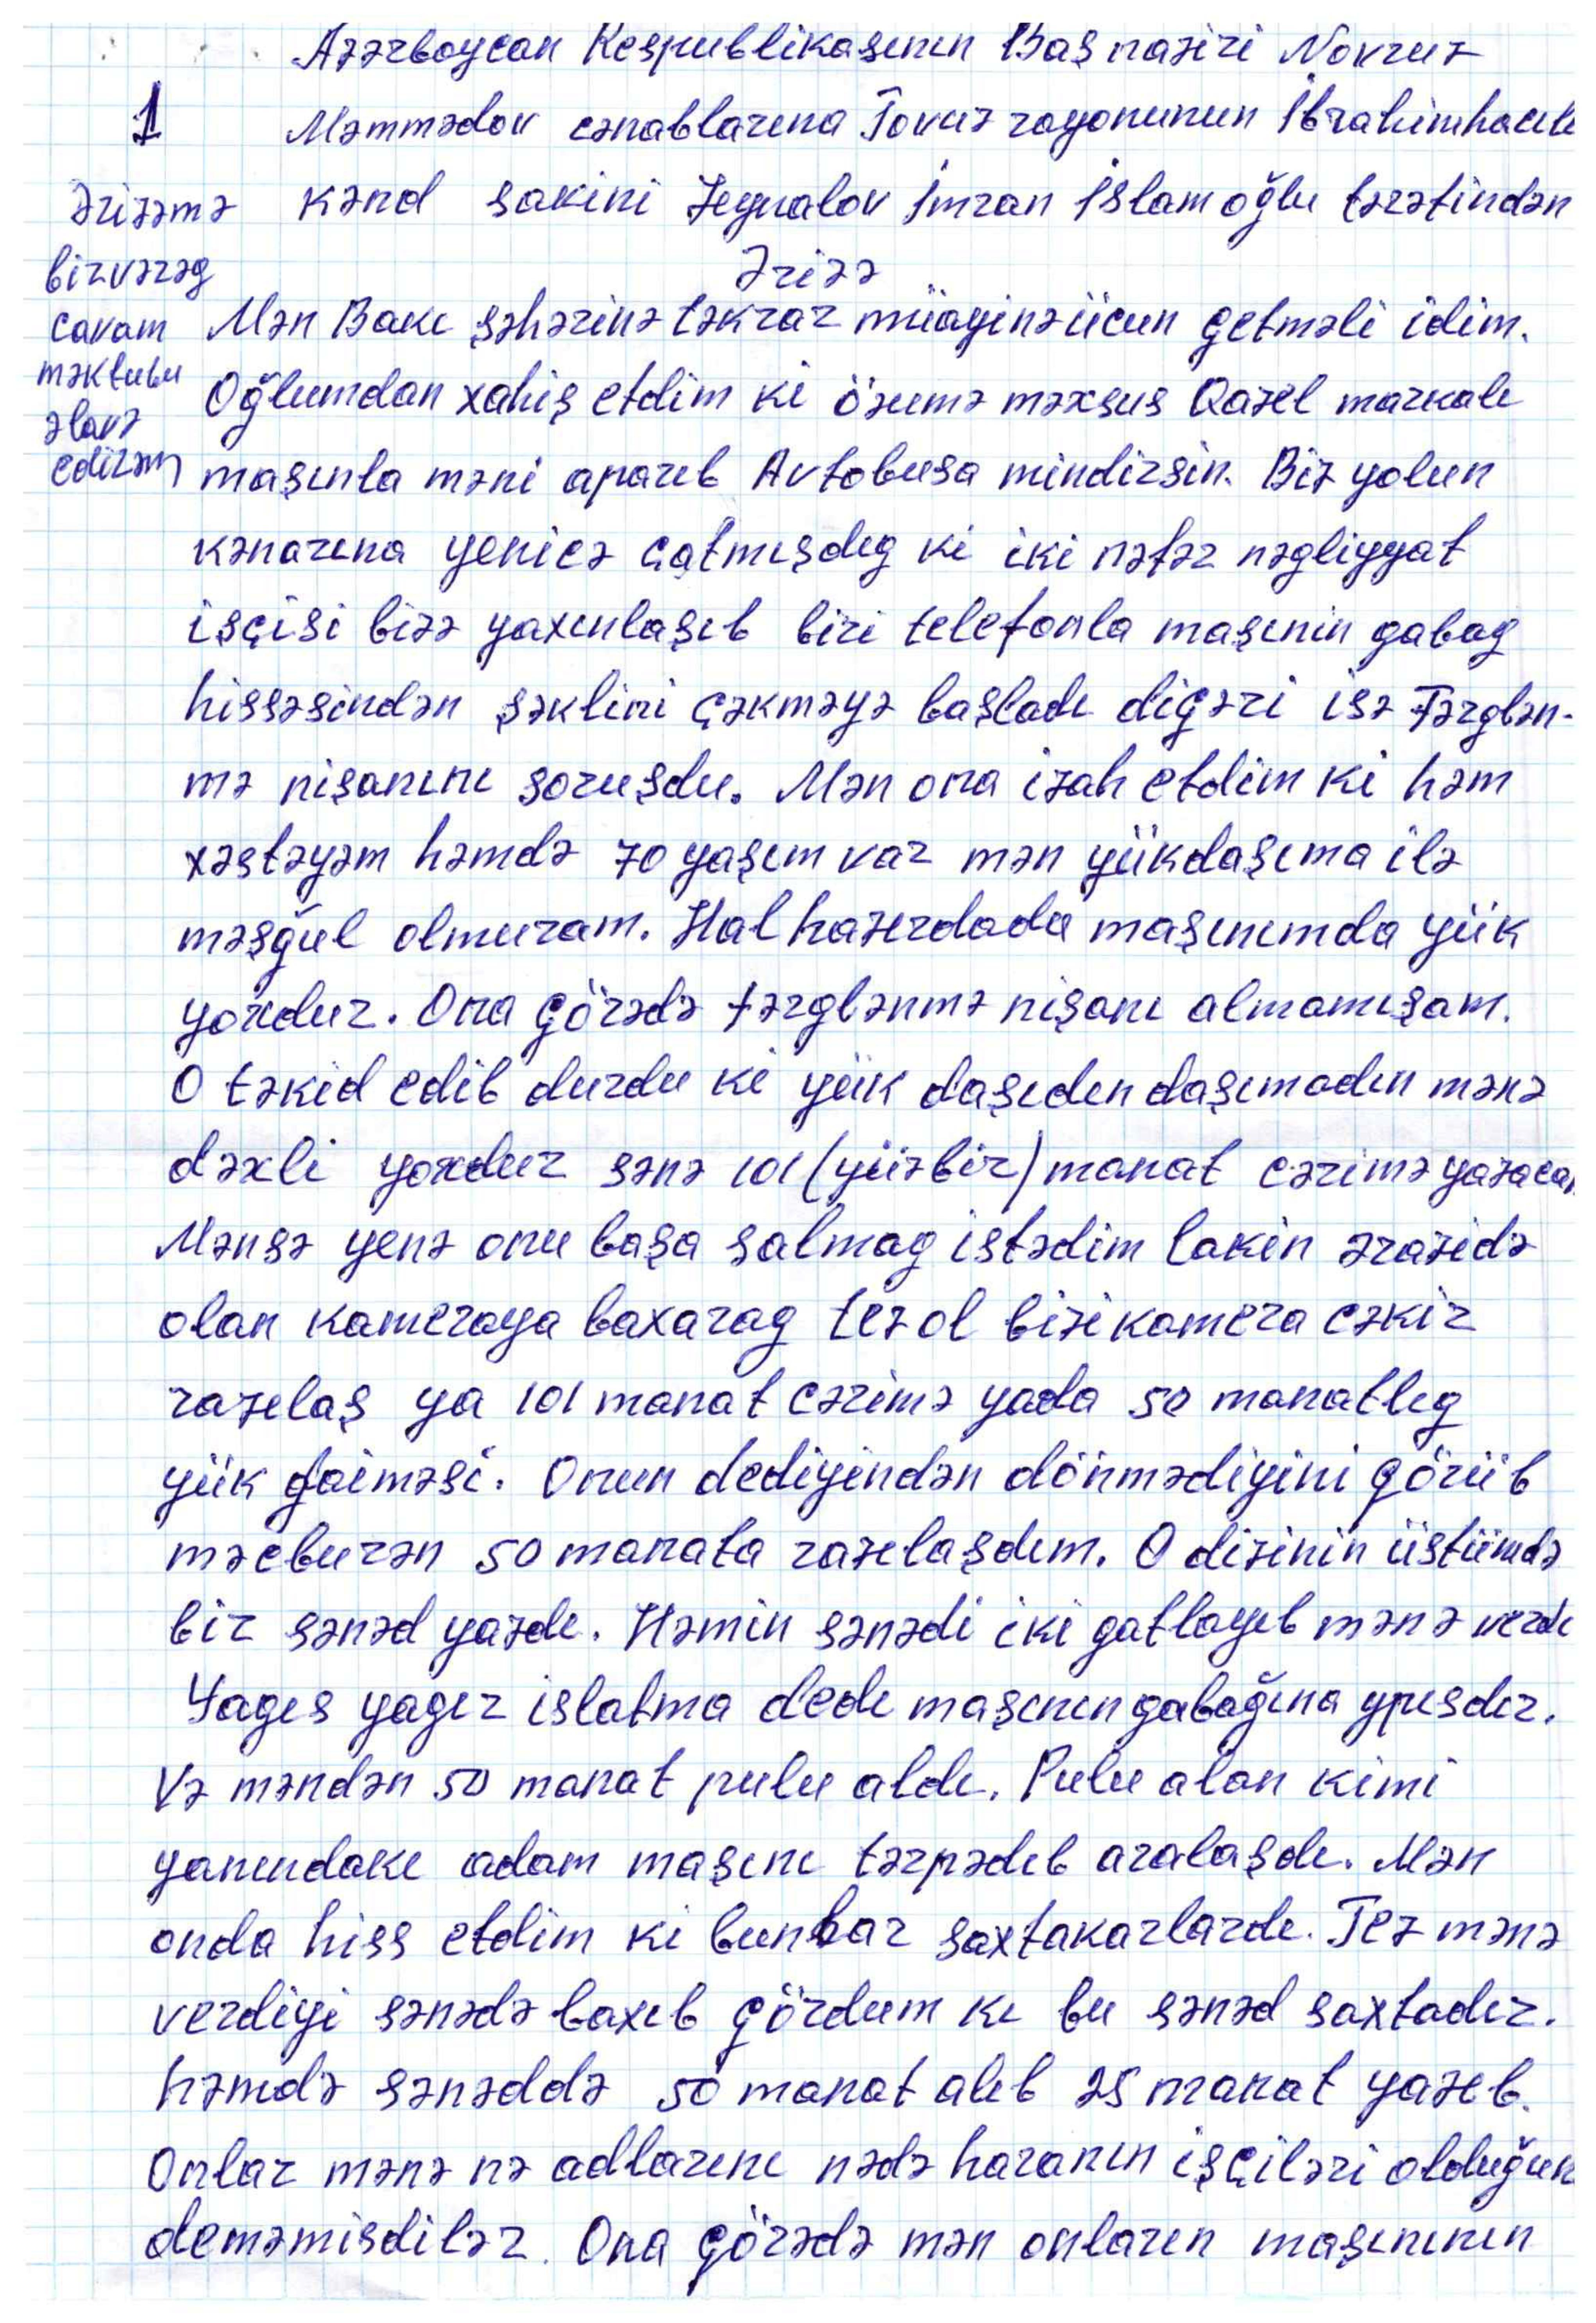 Azərbaycan Respublikasının Baş naziri Novruz
1
Məmmədov cənablarına Tovuz rayonunun İbrahimhacılı
Ərizəmə
kənd sakini Zeynalov İmran İslam oğlu tərəfindən
birvərəg
Ərizə
cavam
Mən Bakı şəhərinə təkrar müayinə üçun getməli idim.
məktubu
Oğlumdan xahiş etdim ki özumə məxsus Qazel markalı
əlavə
edirəm
maşınla məni aparıb Avtobusa mindirsin. Biz yolun
kənarına yenicə çatmışdıg ki iki nəfər nəgliyyat
işçisi bizə yaxınlaşıb biri telefonla maşının gabag
hissəsindən şəklini çəkməyə başladı digəri isə Fərglən-
mə nişanını soruşdu. Mən ona izah etdim ki həm
xəstəyəm həmdə 70 yaşım var mən yükdaşıma ilə
məşğul olmuram. Hal hazırdada maşınımda yük
yoxdur. Ona görədə fərglənmə nişanı almamışam.
O təkid edib durdu ki yük daşıdın daşımadın mənə
dəxli yoxdur sənə 101 (yüzbir) manat cərimə yazacam
Mənsə yenə onu başa salmag istədim lakin ərazidə
olan kameraya baxarag tez ol bizi kamera cəkir
razılaş ya 101 manat cərimə yada 50 manatlıg
yük gaiməsi. Onun dediyindən dönmədiyini görüb
məcburən 50 manata razılaşdım. O dizinin üstündə
bir sənəd yazdı. Həmin sənədi iki gatlayıb mənə verdi
Yagıs yagır islatma dedi maşının gabağına ypısdır.
Və məndən 50 manat pulu aldı. Pulu alan kimi
yanındakı adam maşını tərpədıb aralaşdı. Mən
onda hiss etdim ki bunlar saxtakarlardı. Tez mənə
verdiyi sənədə baxıb gördum kı bu sənəd saxtadır.
həmdə sənəddə 50 manat alıb 25 manat yazıb.
Onlar mənə nə adlarını nədə haranın işçiləri olduğun
deməmisdilər. Ona görədə mən onların maşınının